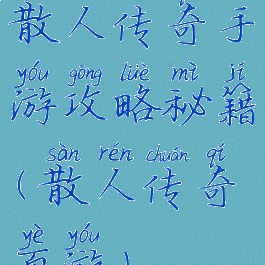 散人传奇手
yóu gōng lüè mì jí
游攻略秘籍
sàn rén chuán qí
(散人传奇
yè yóu
页游)